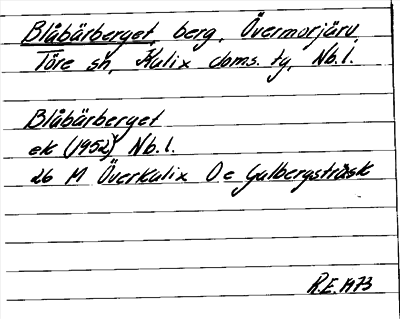 Blåbärberget, berg, Övermorjärv,
Töre sn, Kalix doms. tg, Nb.l.
Blåbärberget
ek (1952) Nb.l.
26 M Överkalix O e Gulbergsträsk
R.E. 1973